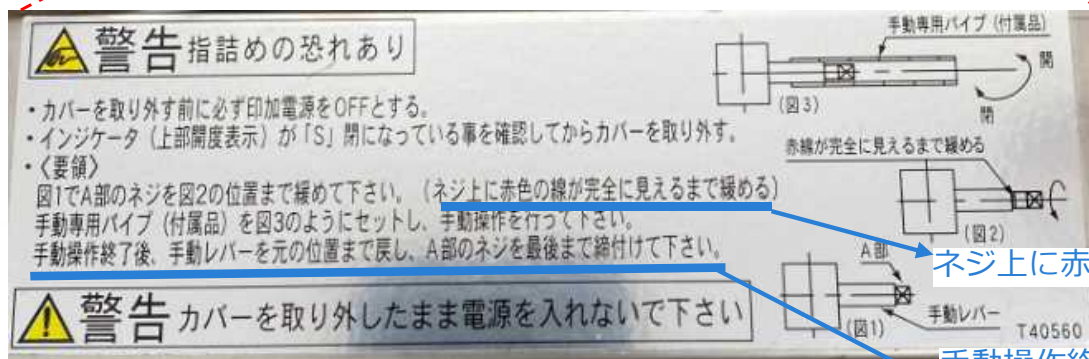 警告 指詰めの恐れあり
・カバーを取り外す前に必ず印加電源をOFFとする。
・インジケータ（上部開度表示）が「S」閉になっている事を確認してからカバーを取り外す。
・〈要領〉
図1でA部のネジを図2の位置まで緩めて下さい。（ネジ上に赤色の線が完全に見えるまで緩める）
手動専用パイプ（付属品）を図3のようにセットし、手動操作を行って下さい。
手動操作終了後、手動レバーを元の位置まで戻し、A部のネジを最後まで締付けて下さい。
警告 カバーを取り外したまま電源を入れないで下さい
手動専用パイプ（付属品）
開
閉
（図3）
赤線が完全に見えるまで緩める
（図2）
A部
ネジ上に赤
（図1）
手動レバー
T40560